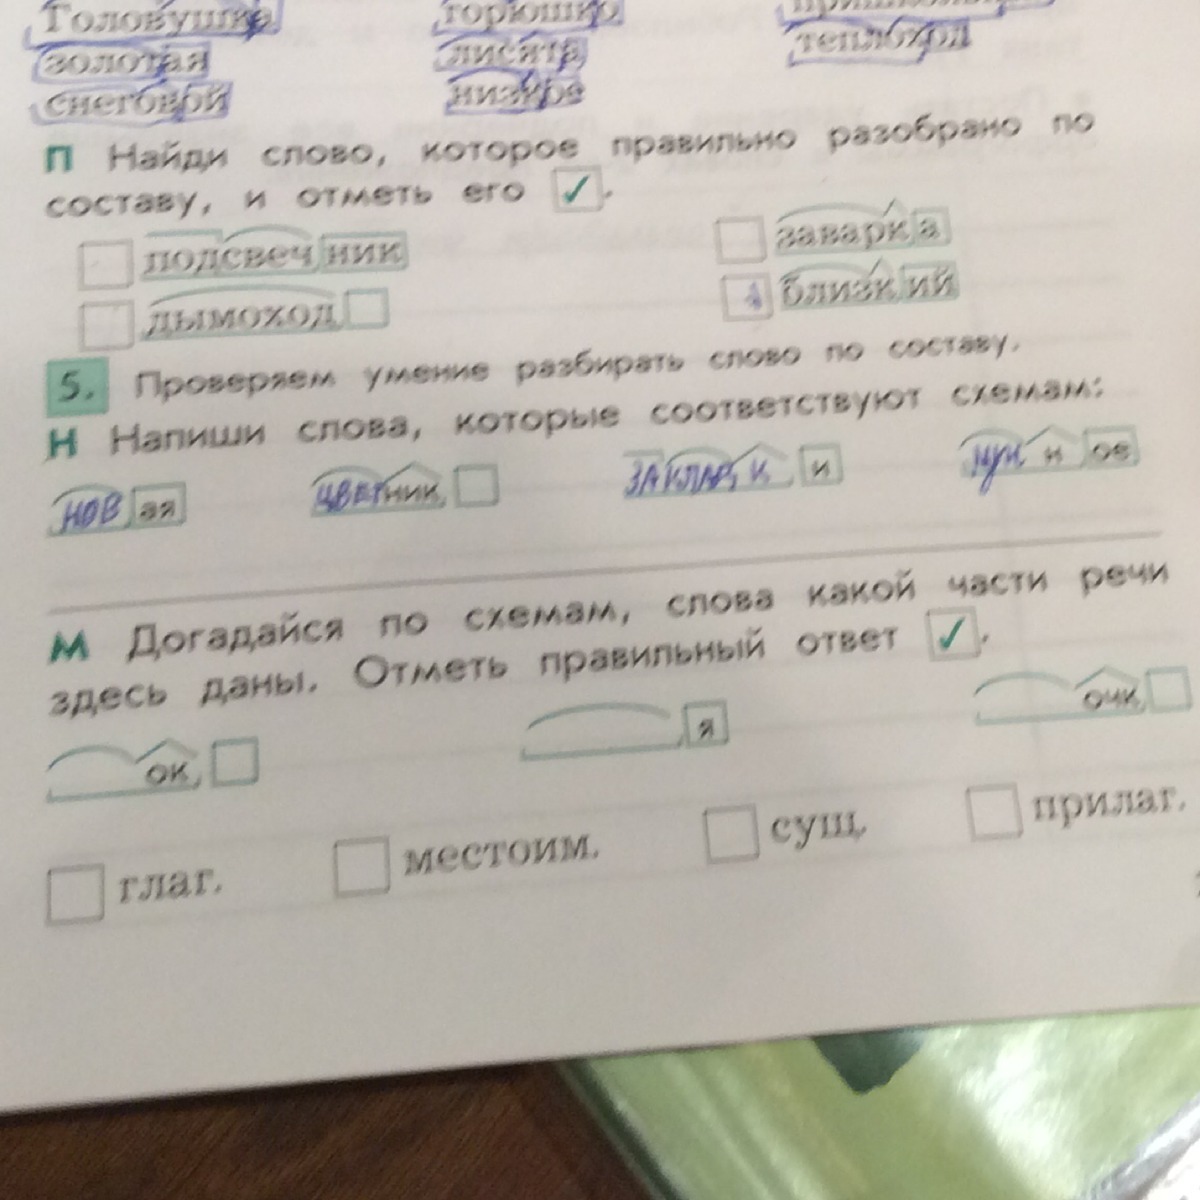 Головушка горюшко
золотая лисята теплоход
снеговой низкое
П Найди слово, которое правильно разобрано по
составу, и отметь его ✓.
подсвечник заварка
дымоход близкий
5. Проверяем умение разбирать слово по составу.
Н Напиши слова, которые соответствуют схемам:
новая цветник и ное
М Догадайся по схемам, слова какой части речи
здесь даны. Отметь правильный ответ ✓.
ок я очк
глаг. местоим. сущ. прилаг.